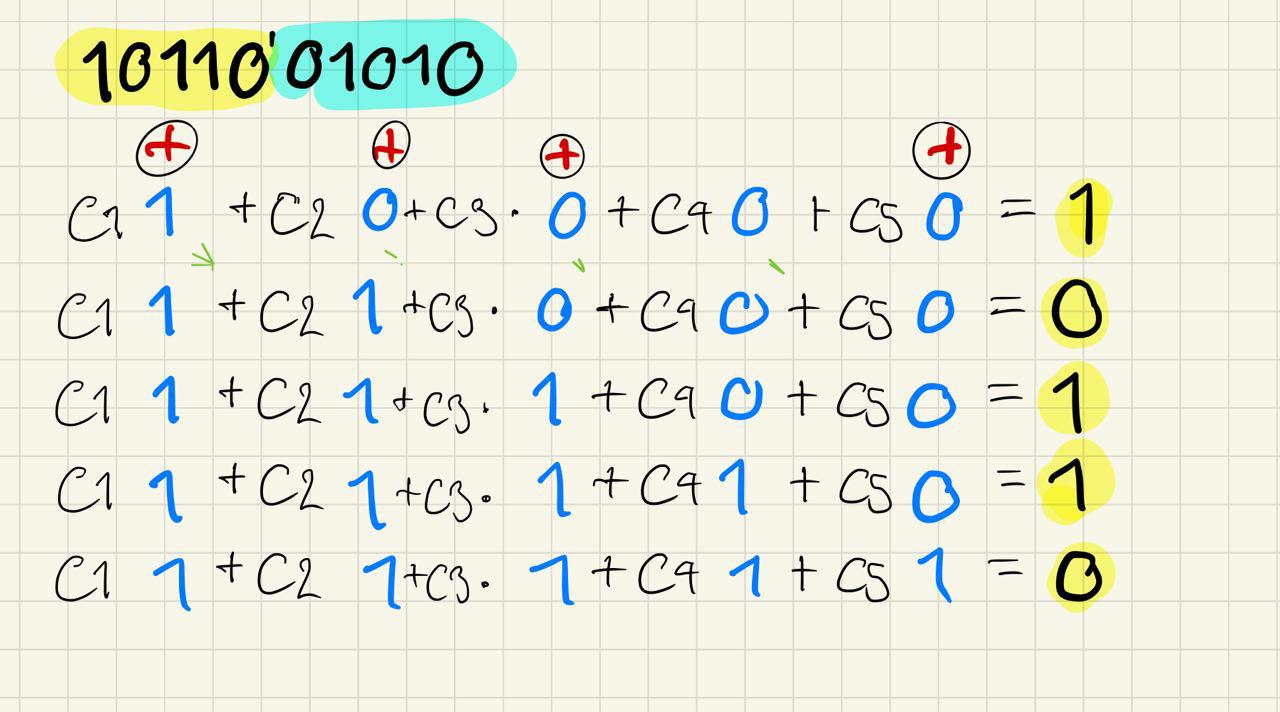 10110'01010
+ + + +
C1 1 + C2 0 + C3 · 0 + C4 0 + C5 0 = 1
C1 1 + C2 1 + C3 · 0 + C4 0 + C5 0 = 0
C1 1 + C2 1 + C3 · 1 + C4 0 + C5 0 = 1
C1 1 + C2 1 + C3 · 1 + C4 1 + C5 0 = 1
C1 1 + C2 1 + C3 · 1 + C4 1 + C5 1 = 0